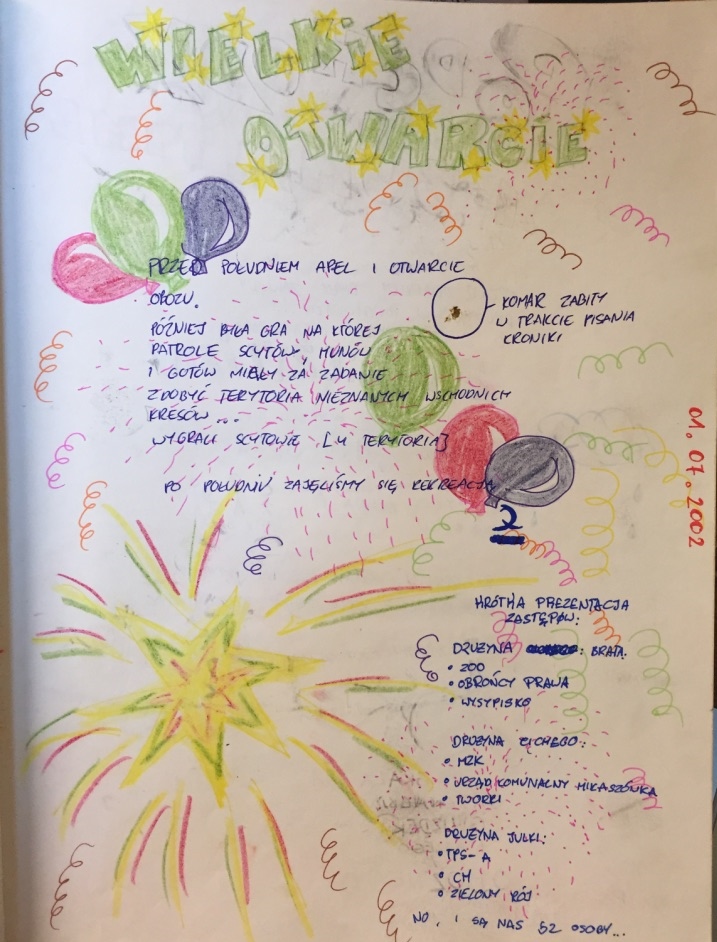 WIELKIE
OTWARCIE
PRZED POŁUDNIEM APEL I OTWARCIE
OBOZU.
KOMAR ZABITY
W TRAKCIE PISANIA
KRONIKI
PÓŹNIEJ BYŁA GRA NA KTÓREJ
PATROLE SCYTÓW, HUNÓW
I GOTÓW MIAŁY ZA ZADANIE
ZDOBYĆ TERYTORIA NIEZNANYCH WSCHODNICH
KRESÓW...
WYGRALI SCYTOWIE [4 TERYTORIA]
PO POŁUDNIU ZAJĘLIŚMY SIĘ REKREACJĄ
01.07.2002
2
KRÓTKA PREZENTACJA
ZASTĘPÓW:
DRUŻYNA : BRATA:
• ZOO
• OBROŃCY PRAWA
• WYSYPISKO
DRUŻYNA CICHEGO:
• MZK
• URZĄD KOMUNALNY MIKASZÓWKA
• TWORKI
DRUŻYNA JULKI:
• TPS-A
• CH
• ZIELONY RÓJ
NO, I SĄ NAS 52 OSOBY...